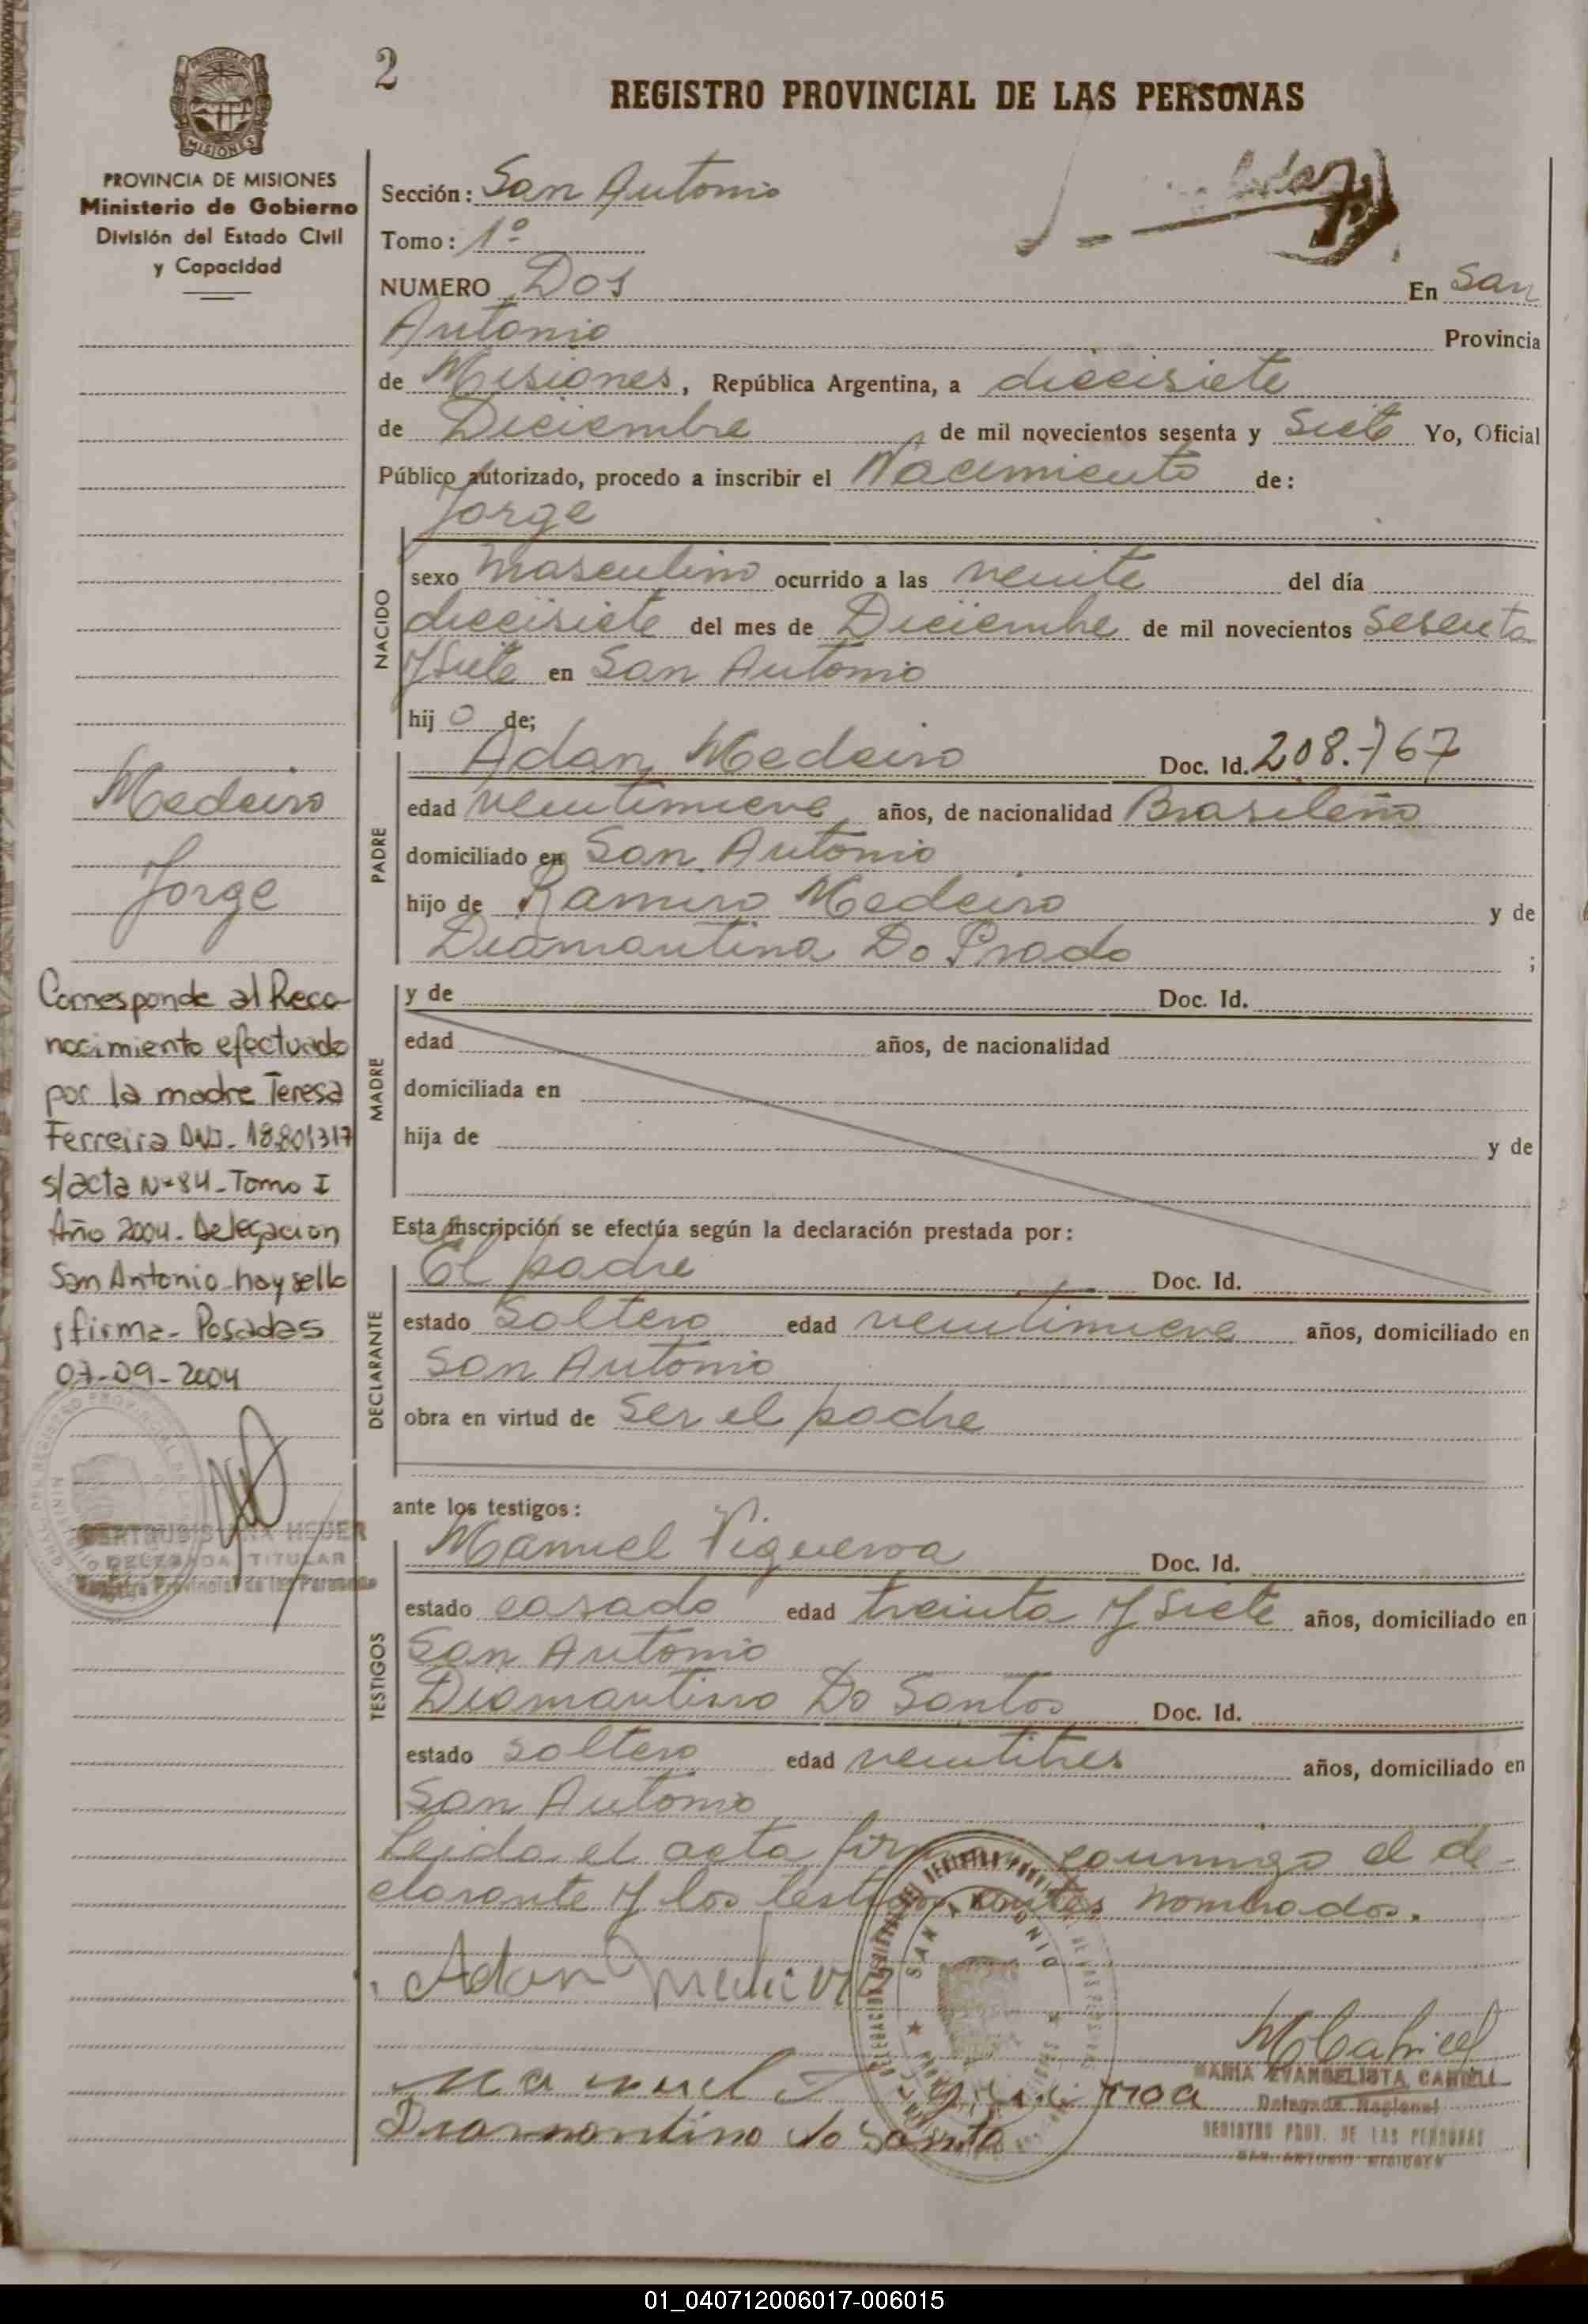 2
REGISTRO PROVINCIAL DE LAS PERSONAS
MISIONES
PROVINCIA DE MISIONES
Ministerio de Gobierno
División del Estado Civil
y Capacidad
Sección: San Antonio
Tomo: 1º
NUMERO Dos En San
Antonio Provincia
de Misiones, República Argentina, a diecisiete
de Diciembre de mil novecientos sesenta y siete Yo, Oficial
Público autorizado, procedo a inscribir el Nacimiento de:
Jorge
NACIDO
sexo masculino ocurrido a las veinte del día
diecisiete del mes de Diciembre de mil novecientos sesenta
y siete en San Antonio
hijo de;
PADRE
Adan Medeiro Doc. Id. 208.767
edad veintinueve años, de nacionalidad Brasileño
domiciliado en San Antonio
hijo de Ramiro Medeiro y de
Diamantina Do Prado ;
MADRE
y de Doc. Id.
edad años, de nacionalidad
domiciliada en
hija de y de
Esta inscripción se efectúa según la declaración prestada por:
DECLARANTE
El padre Doc. Id.
estado soltero edad veintinueve años, domiciliado en
San Antonio
obra en virtud de ser el padre
ante los testigos:
TESTIGOS
Manuel Figueroa Doc. Id.
estado casado edad treinta y siete años, domiciliado en
San Antonio
Diamantino Do Santos Doc. Id.
estado soltero edad veintitres años, domiciliado en
San Antonio
Leida el acta conmigo el de-
clarante y los testigos antes nombrados.
Adan
Manuel
Diamantino do Santo
MARIA EVANGELISTA
Delegada Regional
REGISTRO PROV. DE LAS PERSONAS
SAN ANTONIO MISIONES
SAN ANTONIO
Medeiro
Jorge
Corresponde al Reco-
nocimiento efectuado
por la madre Teresa
Ferreira DNI. 18.801317
s/acta Nº84-Tomo I
Año 2004. Delegacion
San Antonio hay sello
y firma- Posadas
07-09-2004
HEUER
DELEGADA TITULAR
Registro Provincial de las Personas
01_040712006017-006015